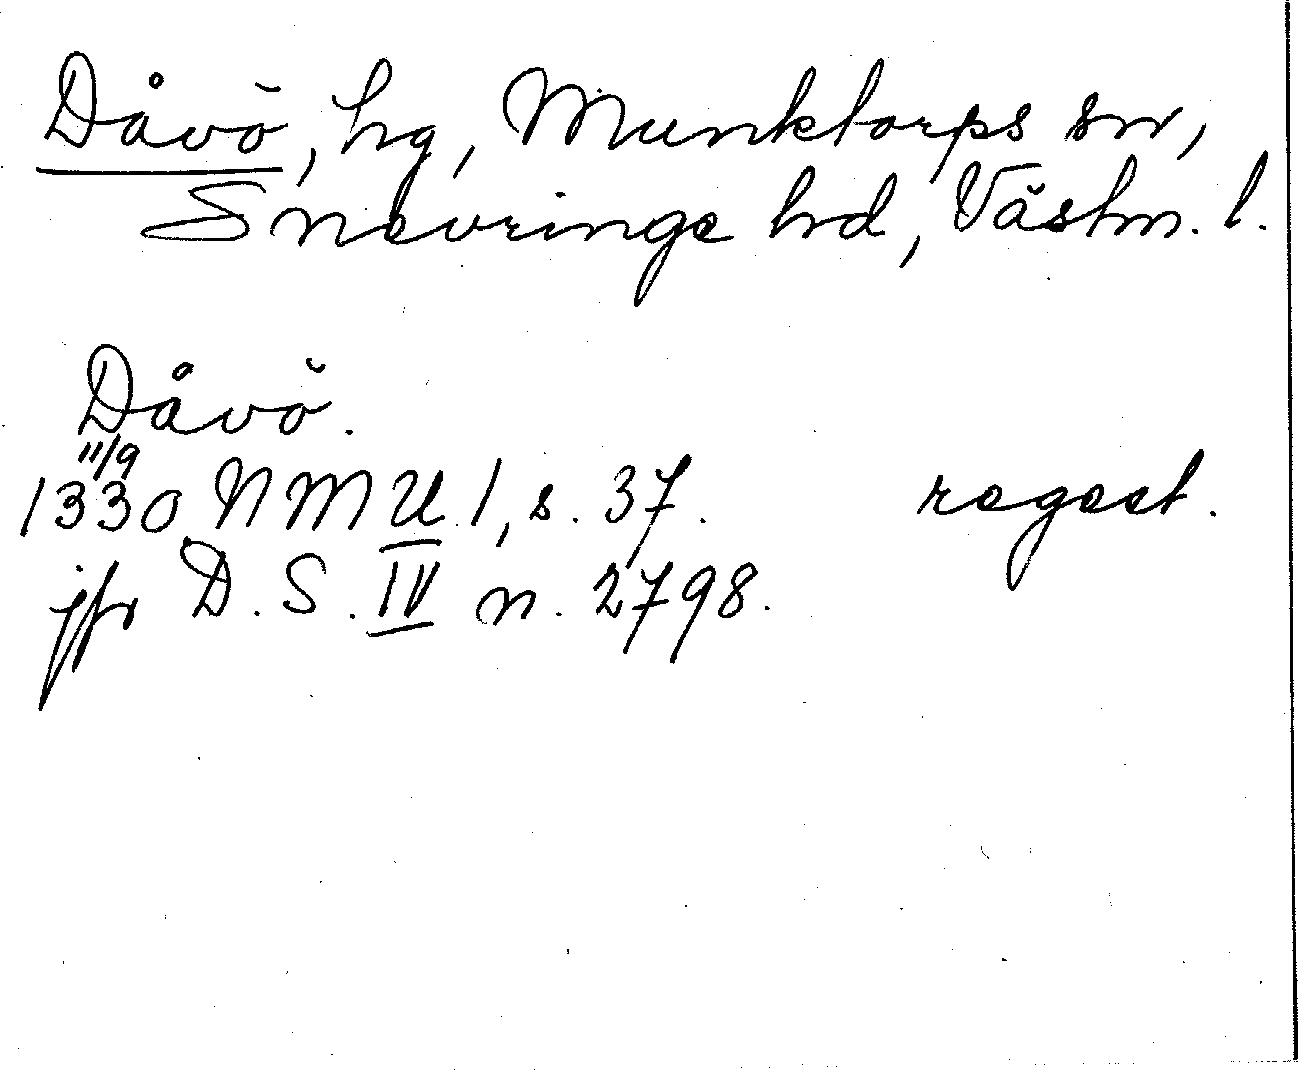 Dåvö, hg, Munktorps sn,
Snevringe hd, Västm. l.
Dåvö.
11/9
1330 NMU 1, s. 37. regest.
jfr D. S. IV n. 2798.